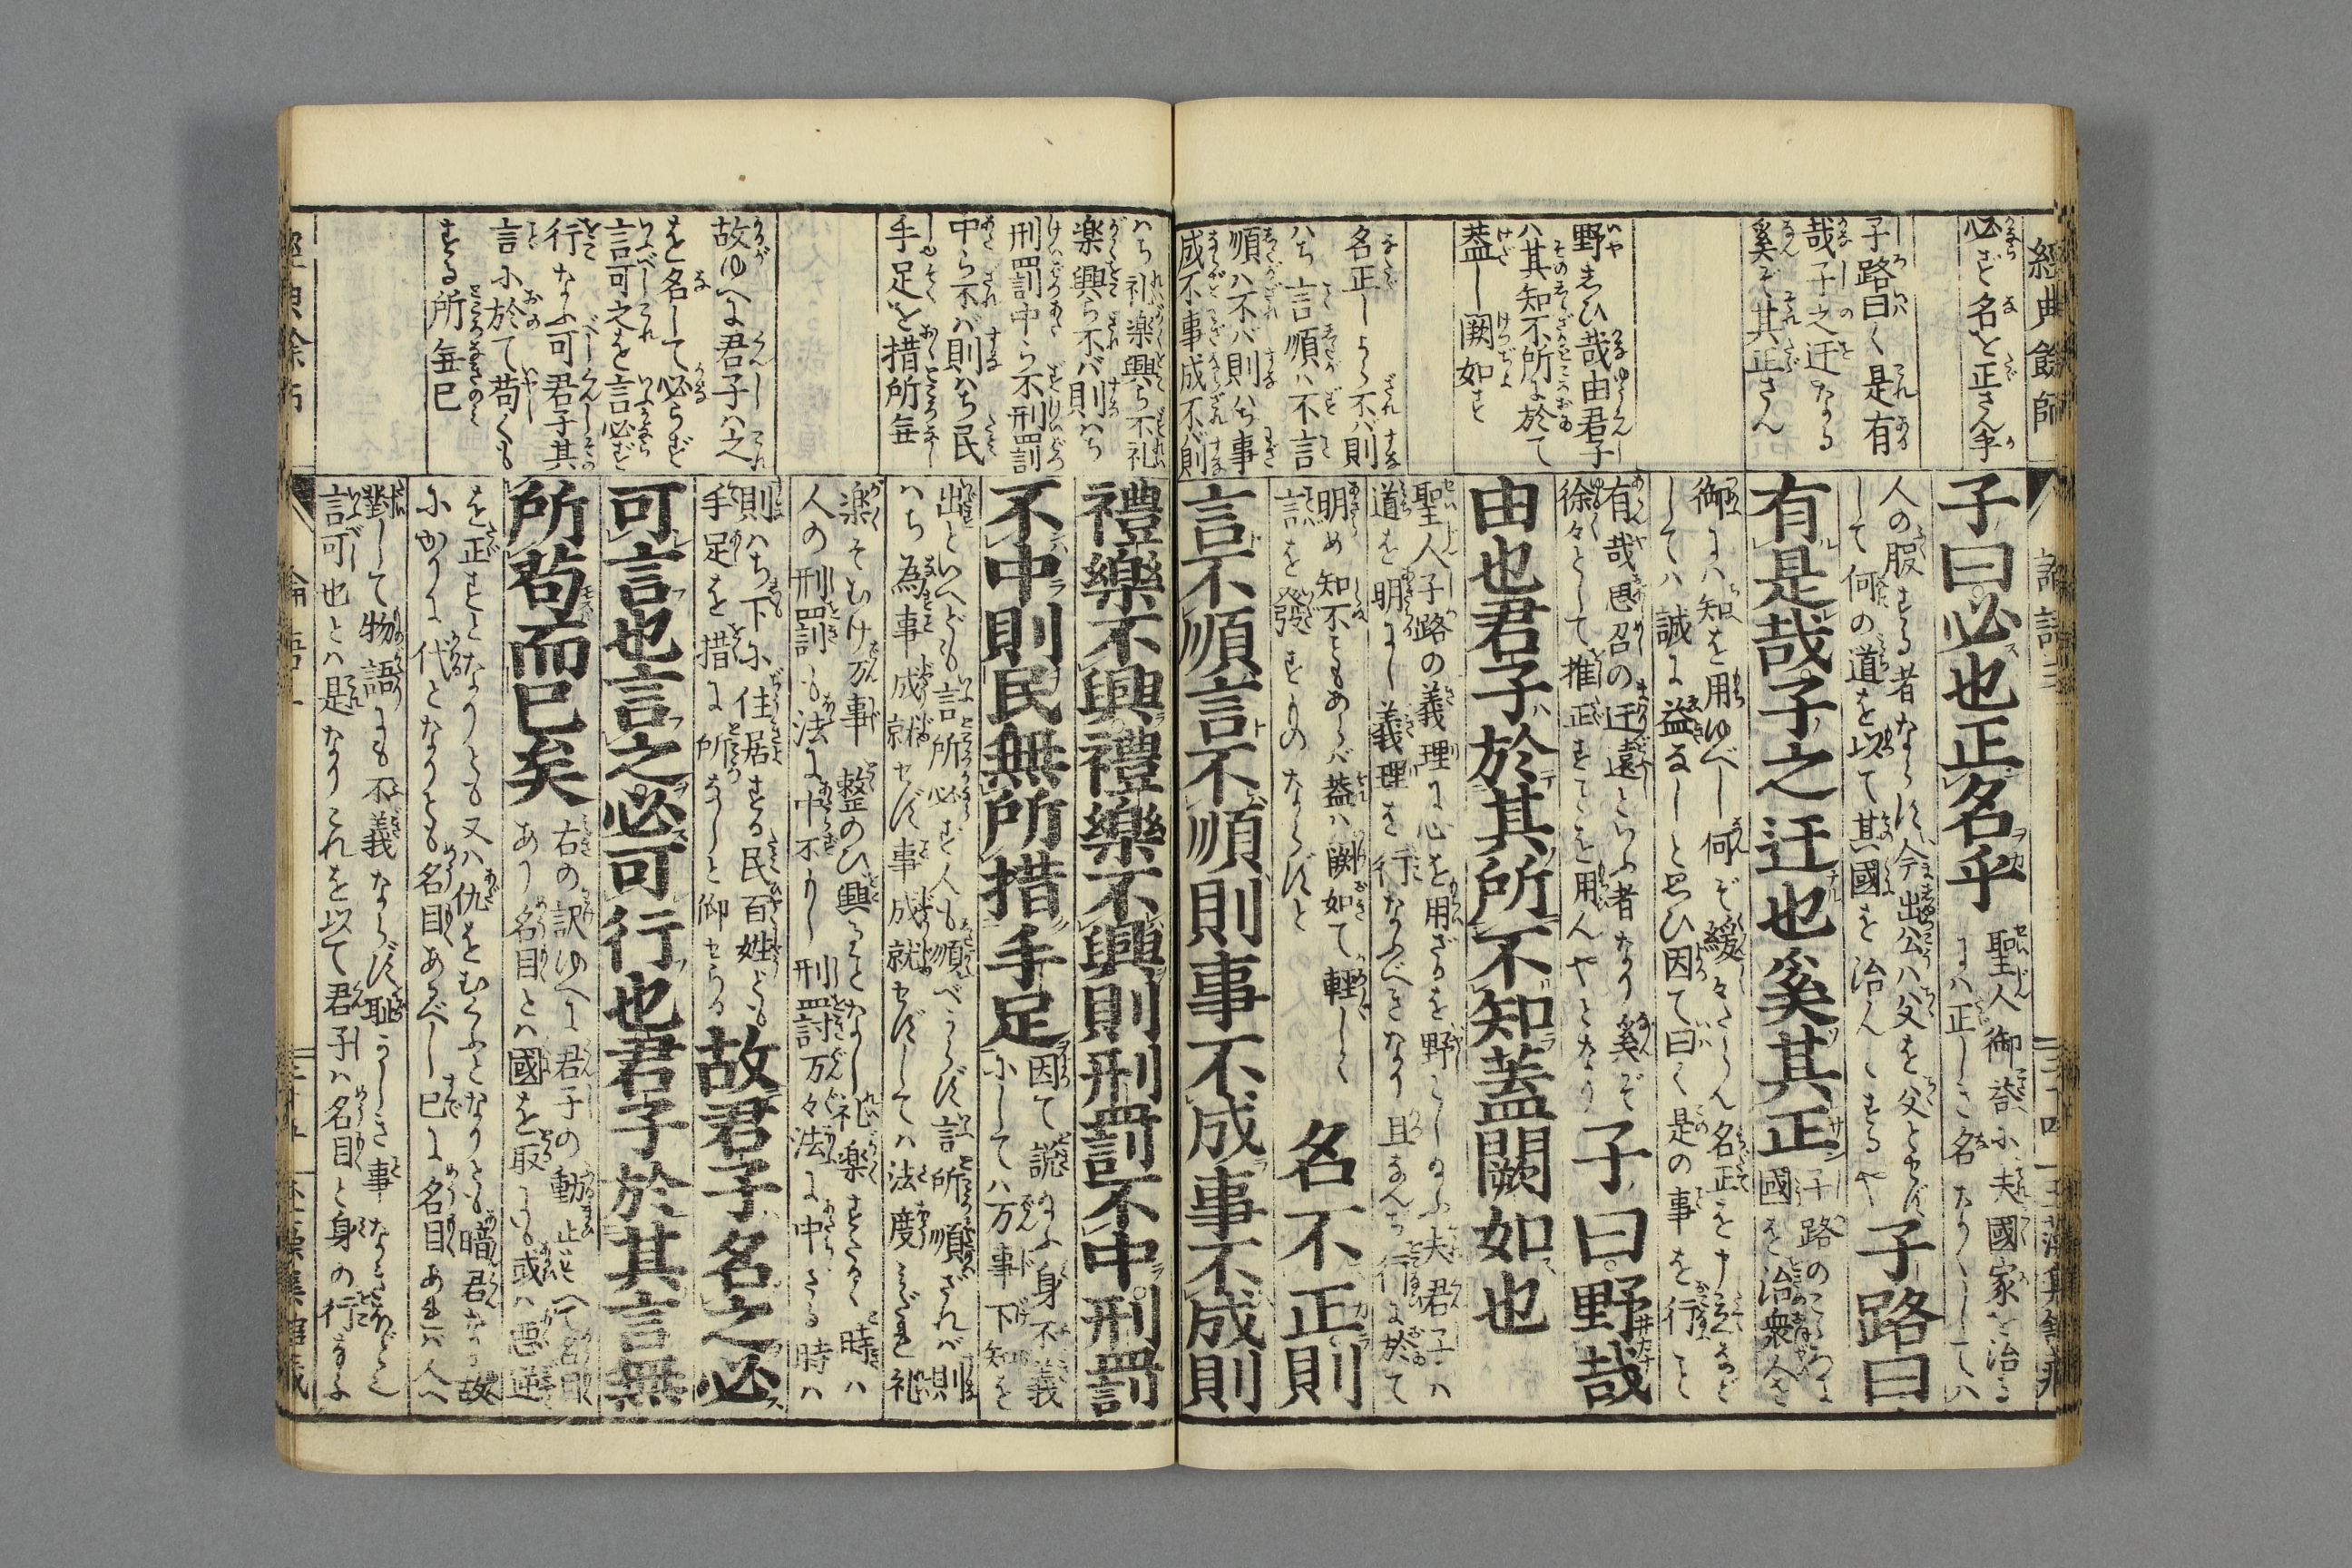 經典餘師
論語三
必ず名を正さん乎
子路曰く是有
哉子之迂なる
奚ぞ其正さん
野だひ哉由君子
ハ其知不所に於て
蓋し闕如す
名正しから不バ則
ハち言順ハ不言
順ハ不バ則ハち事
成不事成不バ則
子曰必也正名乎
聖人御答に夫國家を治る
には正しき名なくしてハ
人の服する者ならず今出公ハ父を父とせず
して何の道を以て其國を治んとするや
子路曰
有是哉子之迂也奚其正
子路のこゝろは
國を治衆人を
御には知を用ゆべし何ぞ緩々たらん名正を
してハ誠に益なしと思ひ因て曰く是の事を行こと
有哉思召の迂遠といふ者なり奚ぞ
徐々として推正すことを用んやとなり
子曰野哉
由也君子於其所不知蓋闕如也
聖人子路の義理に心を用ざるを野しとの給ふ夫君子ハ
道を明にし義理を行なふべきなり且なんぢ行に於て
明め知不ともあらバ蓋ハ闕如て軽しく
言を發すものならずと
名不正則
言不順言不順則事不成事不成則
ハち礼楽興ら不礼
楽興ら不バ則ハち
刑罰中ら不刑罰
中ら不バ則ハち民
手足を措所毎
故ゆへに君子ハ之
を名して必らず
言可之を言必ず
行なふ可君子其
言に於て苟くも
する所毎已
禮樂不興禮樂不興則刑罰不中刑罰
不中則民無所措手足
因て謊の給ふ身不義
にしてハ万事下知を
出といへども言所必ず人も順べからず言所順ざれバ則
ハち為事成就せず事成就せずしてハ法度みだれ礼
楽そむけ万事整のひ興ることなし礼楽すたるゝ時ハ
人の刑罰も法に中不かし刑罰万々法に中ざる時ハ
則ハち下に住居する民百姓ども
手足を措に所なしと仰せらる
故君子名之必
可言也言之必可行也君子於其言無
所苟而已矣
右の訳ゆへに君子の動止すべて名目
あり名目とハ國を取にも或ハ悪逆
を正すとなりとも又ハ仇をむくふとなりとも暗君なる故
にかりに代となりとも名目あるべし已に名目あれバ人へ
對して物語にも不義ならず恥かしき事なきものぞと
言可也とハ是なりこれを以て君子ハ名目と身の行なふ